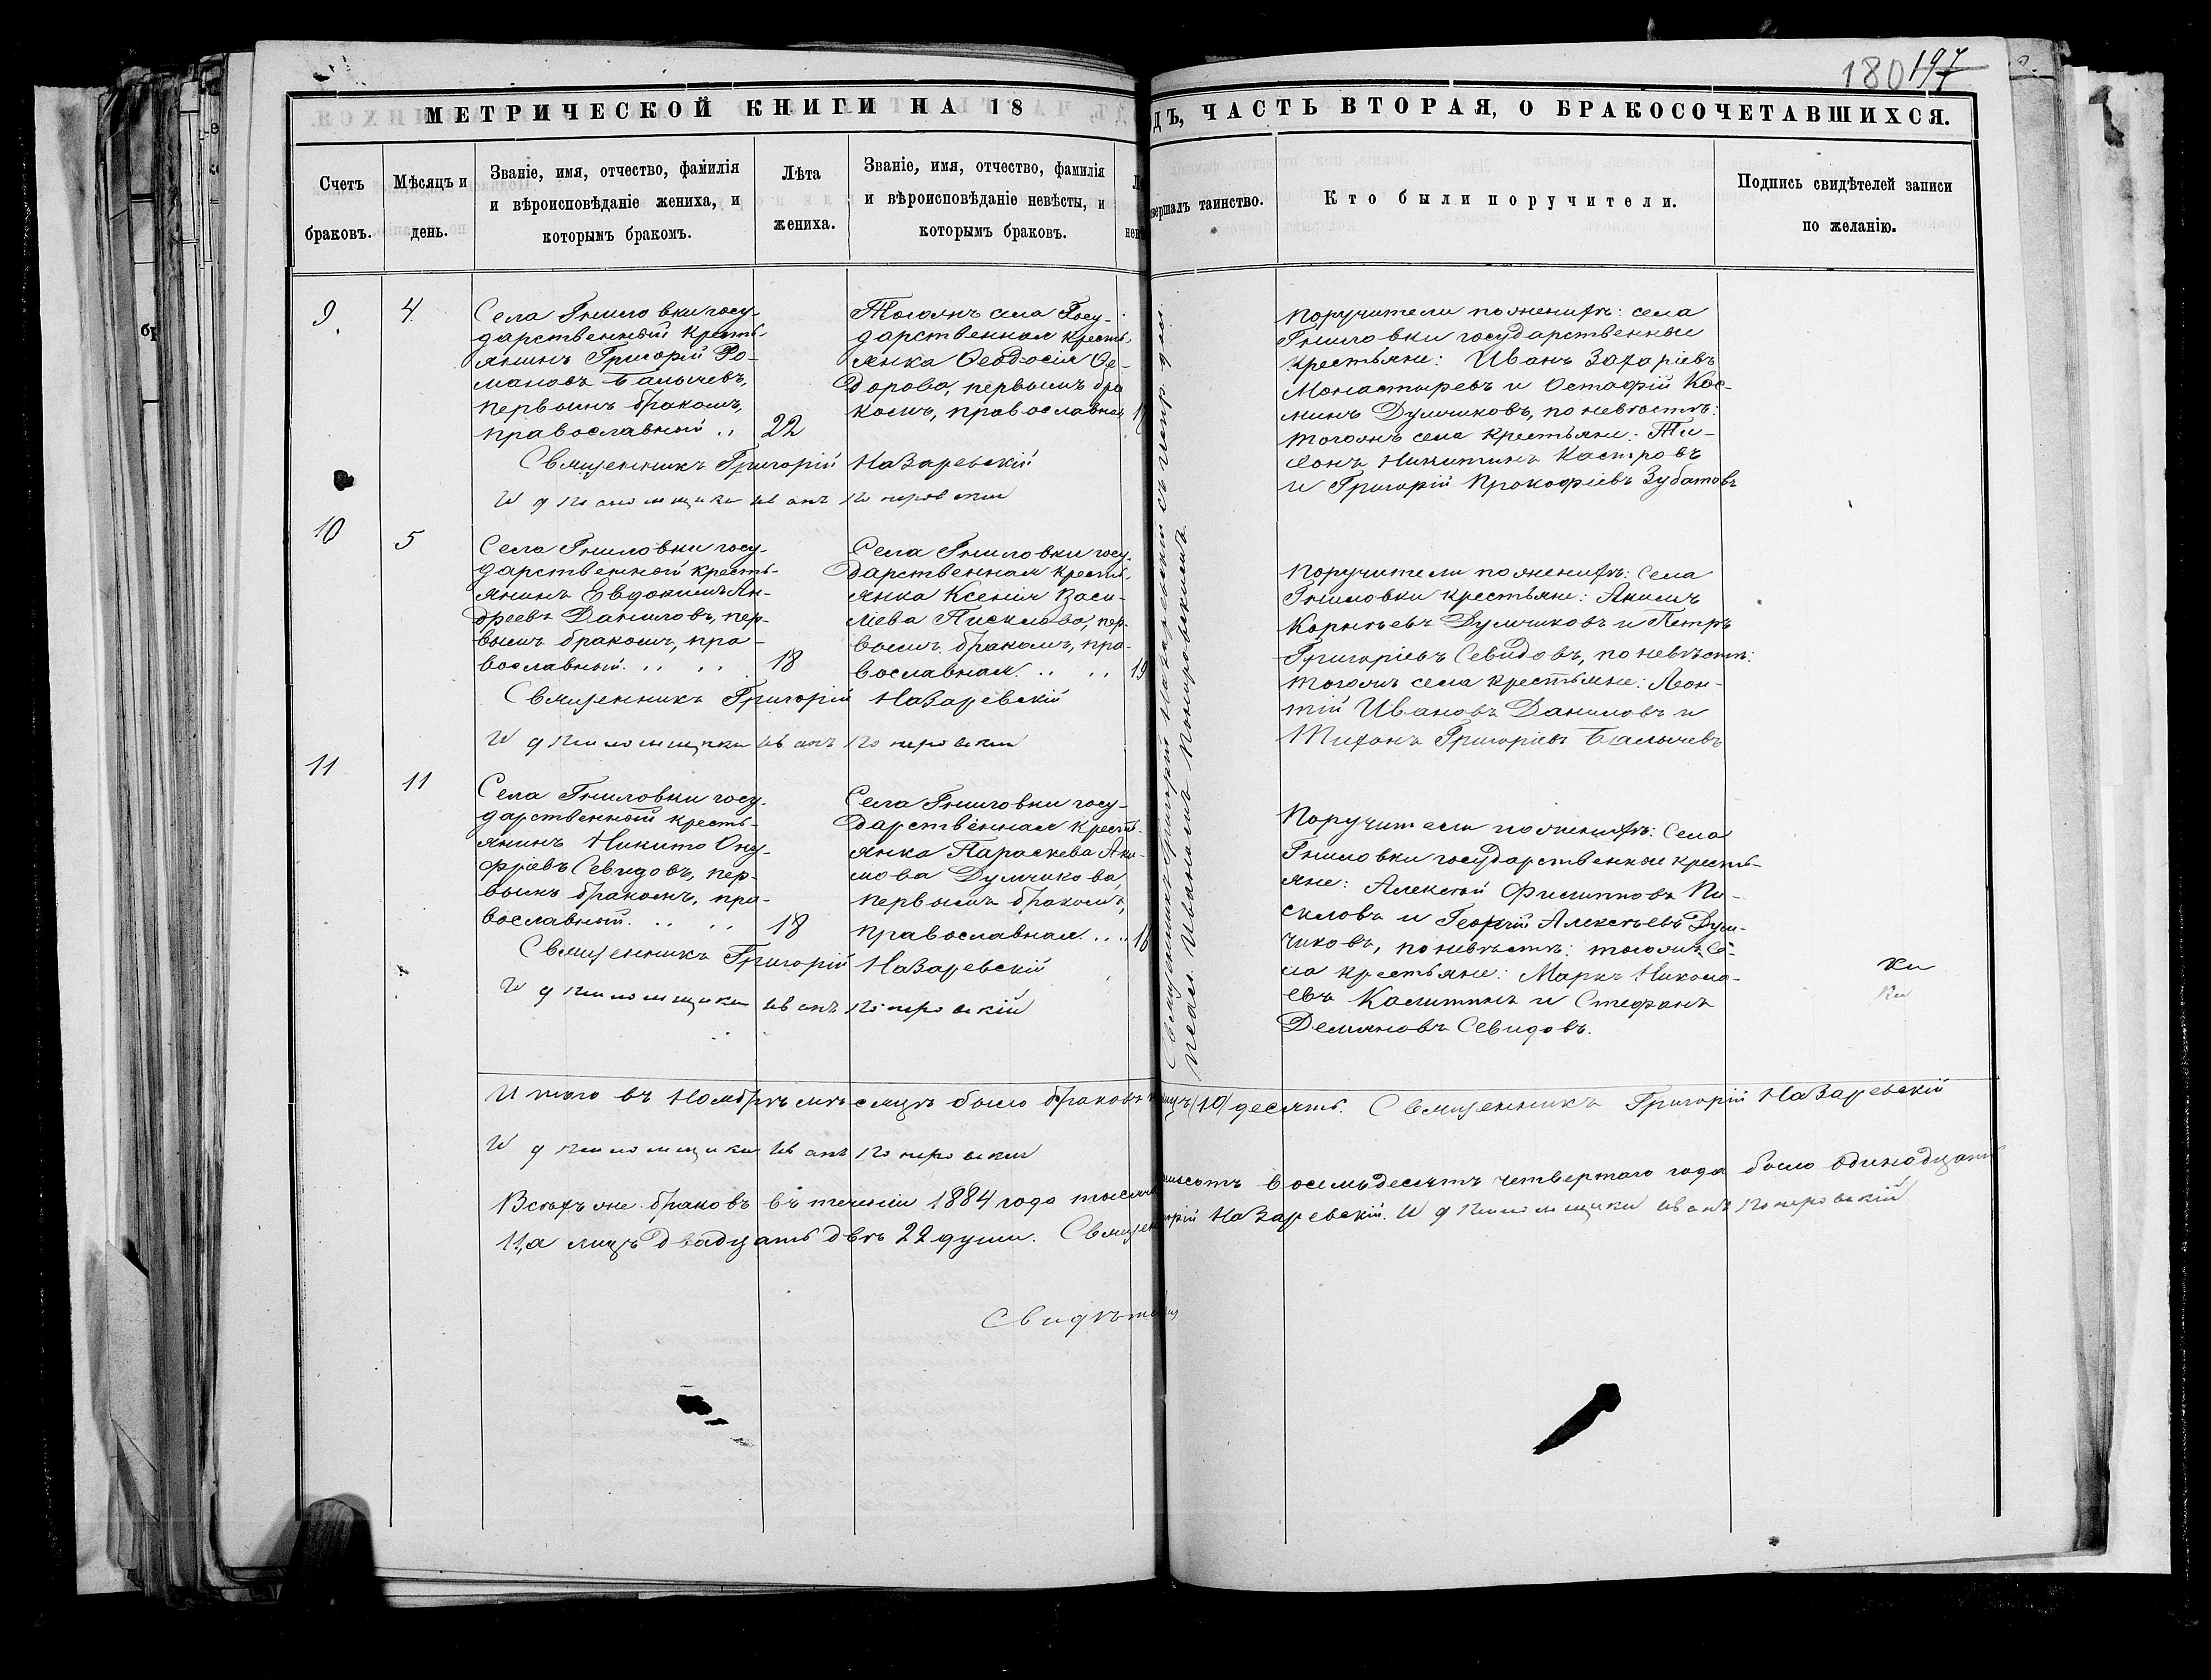 180 197
МЕТРИЧЕСКОЙ КНИГИ НА 18
ДЪ, ЧАСТЬ ВТОРАЯ, О БРАКОСОЧЕТАВШИХСЯ.
Счетъ
браковъ.
Мѣсяцъ и
день.
Званіе, имя, отчество, фамилія
и вѣроисповѣданіе жениха, и
которымъ бракомъ.
Лѣта
жениха.
Званіе, имя, отчество, фамилія
и вѣроисповѣданіе невѣсты, и
которымъ браковъ.
вершалъ таинство.
Кто были поручители.
Подпись свидѣтелей записи
по желанію.
9
4
Села Гниловки госу-
дарственный кресть-
янинъ Григорій Ро-
мановъ Балычевъ,
первымъ бракомъ,
православный
22
Тогожъ села Госу-
дарственная кресть-
янка Ѳеодосія Ѳе-
дорова, первымъ бра
комъ, православная
Поручители по женихѣ: села
Гниловки государственные
крестьяне: Иванъ Захаріевъ
Монастыревъ и Остафій Кос-
минъ Думчиковъ, по невѣстѣ:
тогожъ села крестьяне: Ти-
монъ Никитинъ Кастровъ
и Григорій Прокофіевъ Зубатовъ
Священникъ Григорій Назаревскій
И д Иванъ
10
5
Села Гниловки госу-
дарственной кресть-
янинъ Евдокимъ Ан-
дреевъ Даниловъ, пер-
вымъ бракомъ, пра-
вославный
18
Села Гниловки госу-
дарственная кресть-
янка Ксенія Васи-
лева Писклова, пер-
вымъ бракомъ, пра-
вославная
19
Поручители по женихѣ: Села
Гниловки крестьяне: Акимъ
Корнѣевъ Думчиковъ и Петръ
Григоріевъ Севидовъ, по невѣстѣ:
тогожъ села крестьяне: Леон-
тій Ивановъ Даниловъ и
Тихонъ Григоріевъ Балычевъ
Священникъ Григорій Назаревскій
И д Иванъ
11
11
Села Гниловки госу-
дарственный кресть-
янинъ Никита Ону-
фріевъ Севидовъ, пер-
вымъ бракомъ, пра-
вославный
18
Села Гниловки госу-
дарственная кресть-
янка Параскева Аки-
мова Думчикова,
первымъ бракомъ,
православная
Поручители по женихѣ: Села
Гниловки государственные кресть-
яне: Алексѣй Филипповъ Пи-
скловъ и Георгій Алексѣевъ Дум-
чиковъ, по невѣстѣ: тогожъ се-
ла крестьяне: Маркъ Никола-
евъ Калитинъ и Стефанъ
Демяновъ Севидовъ.
Священникъ Григорій Назаревскій
И д Иванъ
Священникъ Григорій Назаревскій съ испр. дол.
псал. Иваномъ
Итого въ Ноябрѣ мѣсяцѣ было браковъ (10) десять. Священникъ Григорій Назаревскій
И д Иванъ
Всѣхъ же браковъ въ теченіи 1884 года восемьдесятъ четвертаго года было одинадцать
11, а лицъ двадцать двѣ 22 души. Назаревскій. И д Иванъ